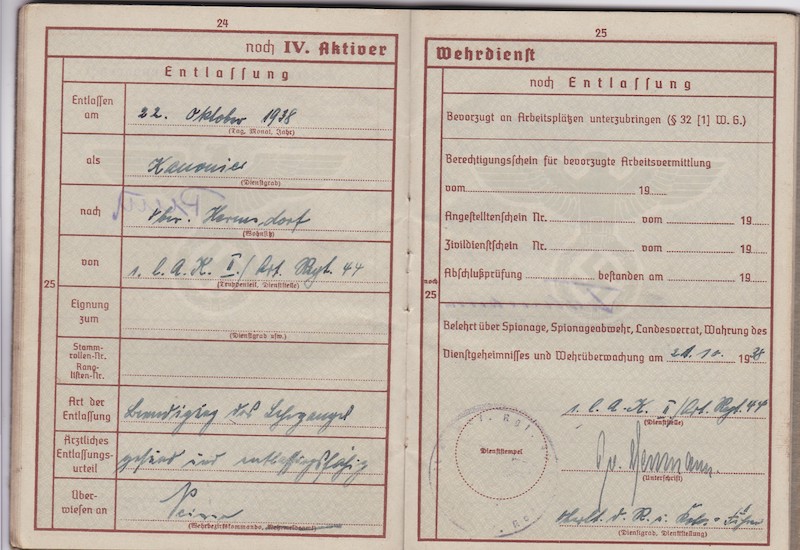 24
noch IV. Aktiver
Entlassung
Entlassen am
22. Oktober 1938
(Tag, Monat, Jahr)
als
Kanonier
(Dienstgrad)
nach
Ober. Hermsdorf
(Wohnsitz)
25
von
s. l. A. K. II./Art. Rgt. 44
(Truppenteil, Dienststelle)
Eignung zum
(Dienstgrad usw.)
Stamm-
rollen-Nr.
Rang-
listen-Nr.
Art der Entlassung
Beendigung des Lehrganges
Ärztliches Entlassungs-
urteil
gesund und entlassungsfähig
Über-
wiesen an
Pirna
(Wehrbezirkskommando, Wehrmeldeamt)
25
Wehrdienst
noch Entlassung
Bevorzugt an Arbeitsplätzen unterzubringen (§ 32 [1] W. G.)
Berechtigungsschein für bevorzugte Arbeitsvermittlung
vom 19
Angestelltenschein Nr. vom 19
Zivildienstschein Nr. vom 19
Abschlußprüfung bestanden am 19
noch
25
Belehrt über Spionage, Spionageabwehr, Landesverrat, Wahrung des
Dienstgeheimnisses und Wehrüberwachung am 21.10. 1938
s. l. A. K. II/Art. Rgt. 44
(Dienststelle)
Dienststempel
(Unterschrift)
(Dienstgrad, Dienststellung)